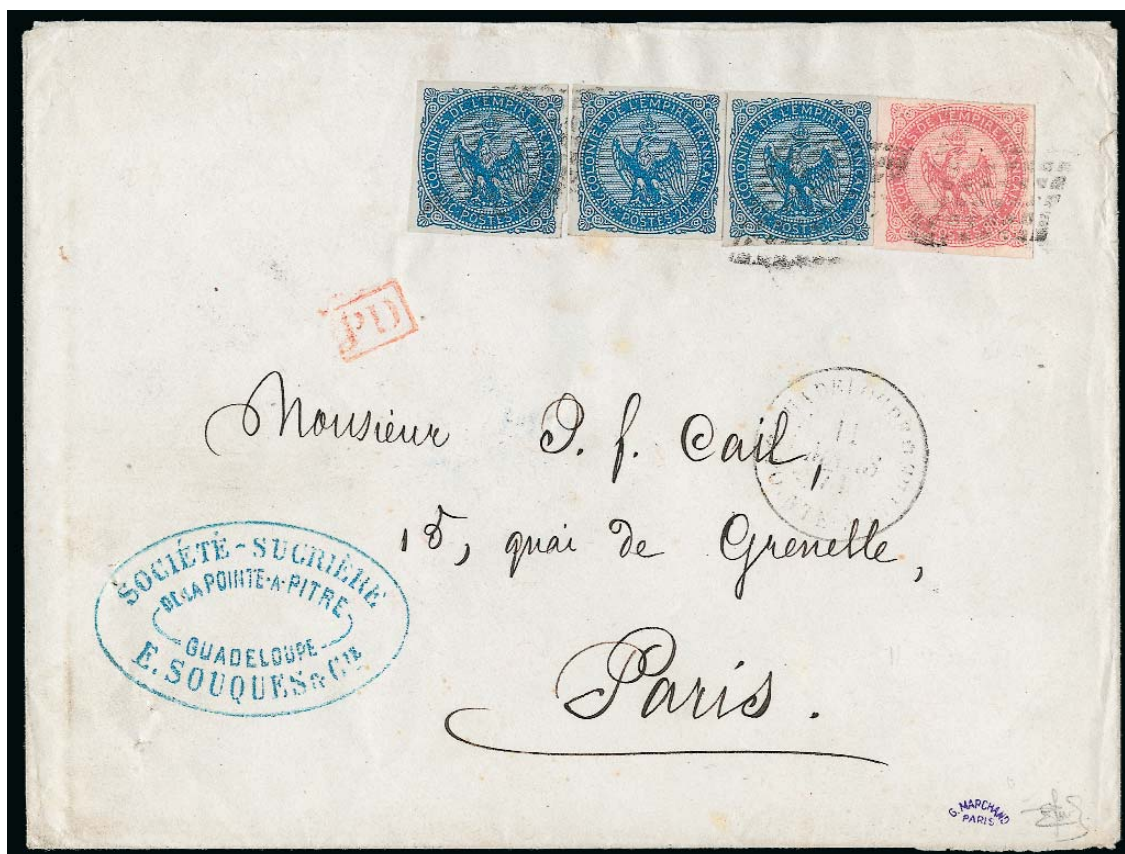 COLONIES DE L'EMPIRE FRANÇAIS
POSTES
COLONIES DE L'EMPIRE FRANÇAIS
POSTES
COLONIES DE L'EMPIRE FRANÇAIS
POSTES
COLONIES DE L'EMPIRE FRANÇAIS
PD
Monsieur J. f. Cail,
15, quai de Grenelle,
Paris.
GUADELOUPE
11
SOCIÉTÉ-SUCRIÈRE
DE LA POINTE-A-PITRE
GUADELOUPE
E. SOUQUES & Cie
G. MARCHAND
PARIS